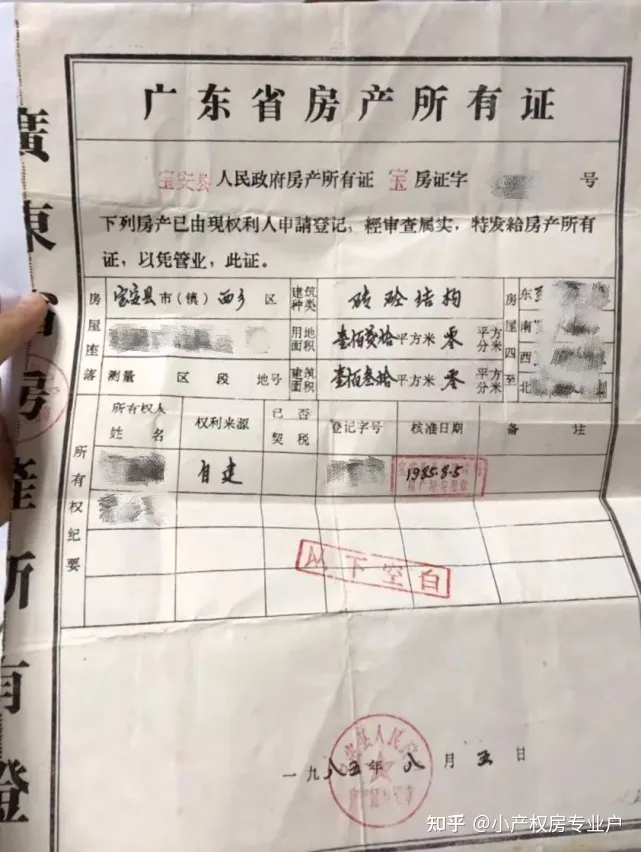 广东省房产所有证
宝安县 人民政府房产所有证 宝 房证字 号
下列房产已由现权利人申請登记，經审查属实，特发給房产所有
证，以凭管业，此证。
房屋座落 宝安县 市（镇）西乡 区
测量 区 段 地号
建筑种类 砖砼结构
用地面积 平方米 零 平方分米
建筑面积 壹佰叁拾 平方米 零 平方分米
房屋四至 东
南
西
北
所有权纪要
所有权人姓名 权利来源 已否契税 登记字号 核准日期 备註
自建 1985.8.5
以下空白
一九八五年八月五日
廣東省房產所有證
知乎 @小产权房专业户